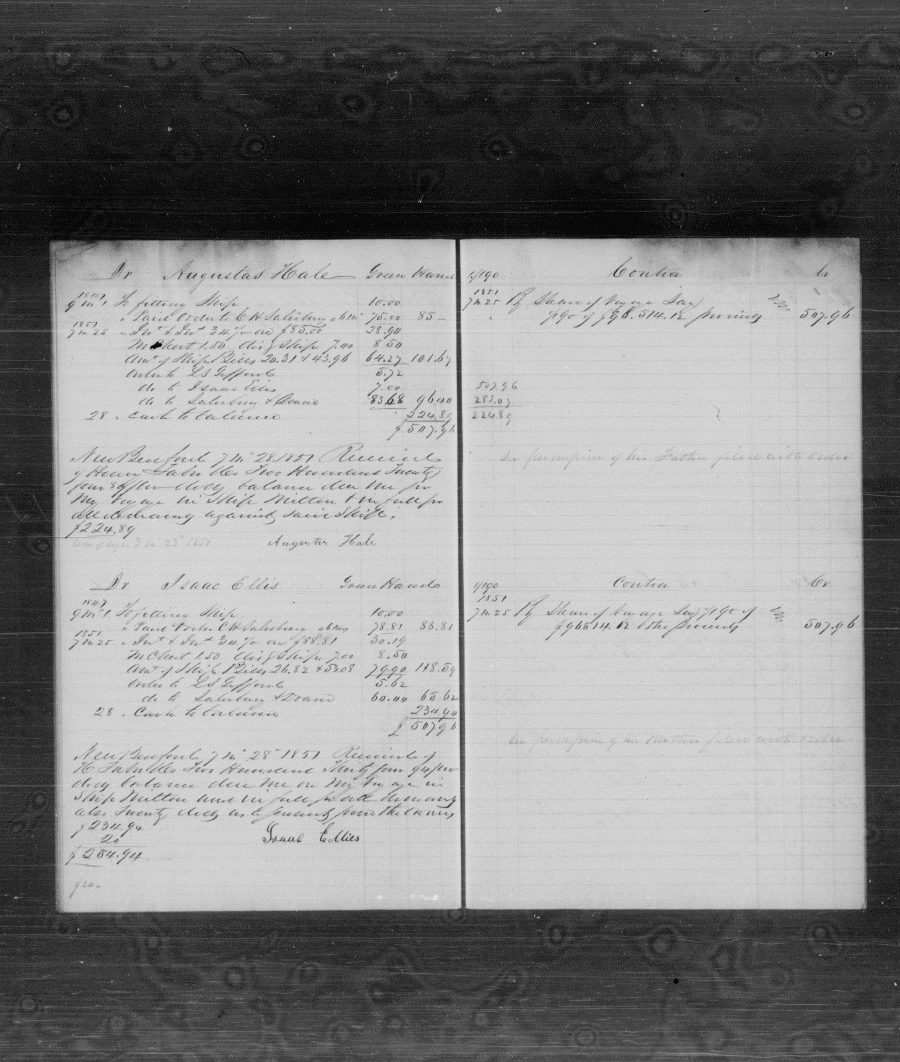 Dr Augustas Hale Green Hand
1847
9 m 1 To fitting Ship 10.00
" Paid Order to C H Salisbury 75.00 85 —
1851
7 m 25 " Int & Ins 34 % on $85.00 28.90
M Chest 1.50 disg Ship 7.00 8.50
Amt of Ship Bills 20.31 & 43.96 64.27 101.67
Order to L S Gifford 5.72
do to Isaac Ellis 7.00
do to Salisbury & Deane 83.68 96.40
28 " Cash to balance 224.89
$ 507.96
New Bedford 7 m 28 1851 Received
of Henry Taber & Co Two Hundred Twenty
four 89/100 dolls balance due me for
My Voyage in Ship Milton & in full for
all demands against said Ship.
$224.89
Augustus Hale
Dr Isaac Ellis Green Hand
1847
9 m 1 To fitting Ship 10.00
" Paid Order C H Salisbury 78.81 88.81
1851
7 m 25 " Int & Ins 34 % on $88.81 30.19
M Chest 1.50 disg Ship 7.00 8.50
Amt of Ship Bills 26.82 & 53.08 79.90 118.59
Order to L S Gifford 5.62
do to Salisbury & Deane 60.00 65.62
28 " Cash to balance 234.94
$ 507.96
New Bedford 7 m 28 1851 Received of
H Taber & Co Two Hundred thirty four 94/100
dolls balance due me on My Voyage in
Ship Milton and in full for all demands
also Twenty dolls
$234.94
20
$254.94
Isaac Ellis
$20.
1/190 Contra Cr
1851
7 m 25 By Share of Voyage Lay
1/190 of $96.514.12 proceeds 507.96
507.96
283.07
224.89
permission of his Father filed with order
1/190 Contra Cr
1851
7 m 25 By Share of Voyage Lay 1/190 of
$96514.12 the proceeds 507.96
permission of his filed with order